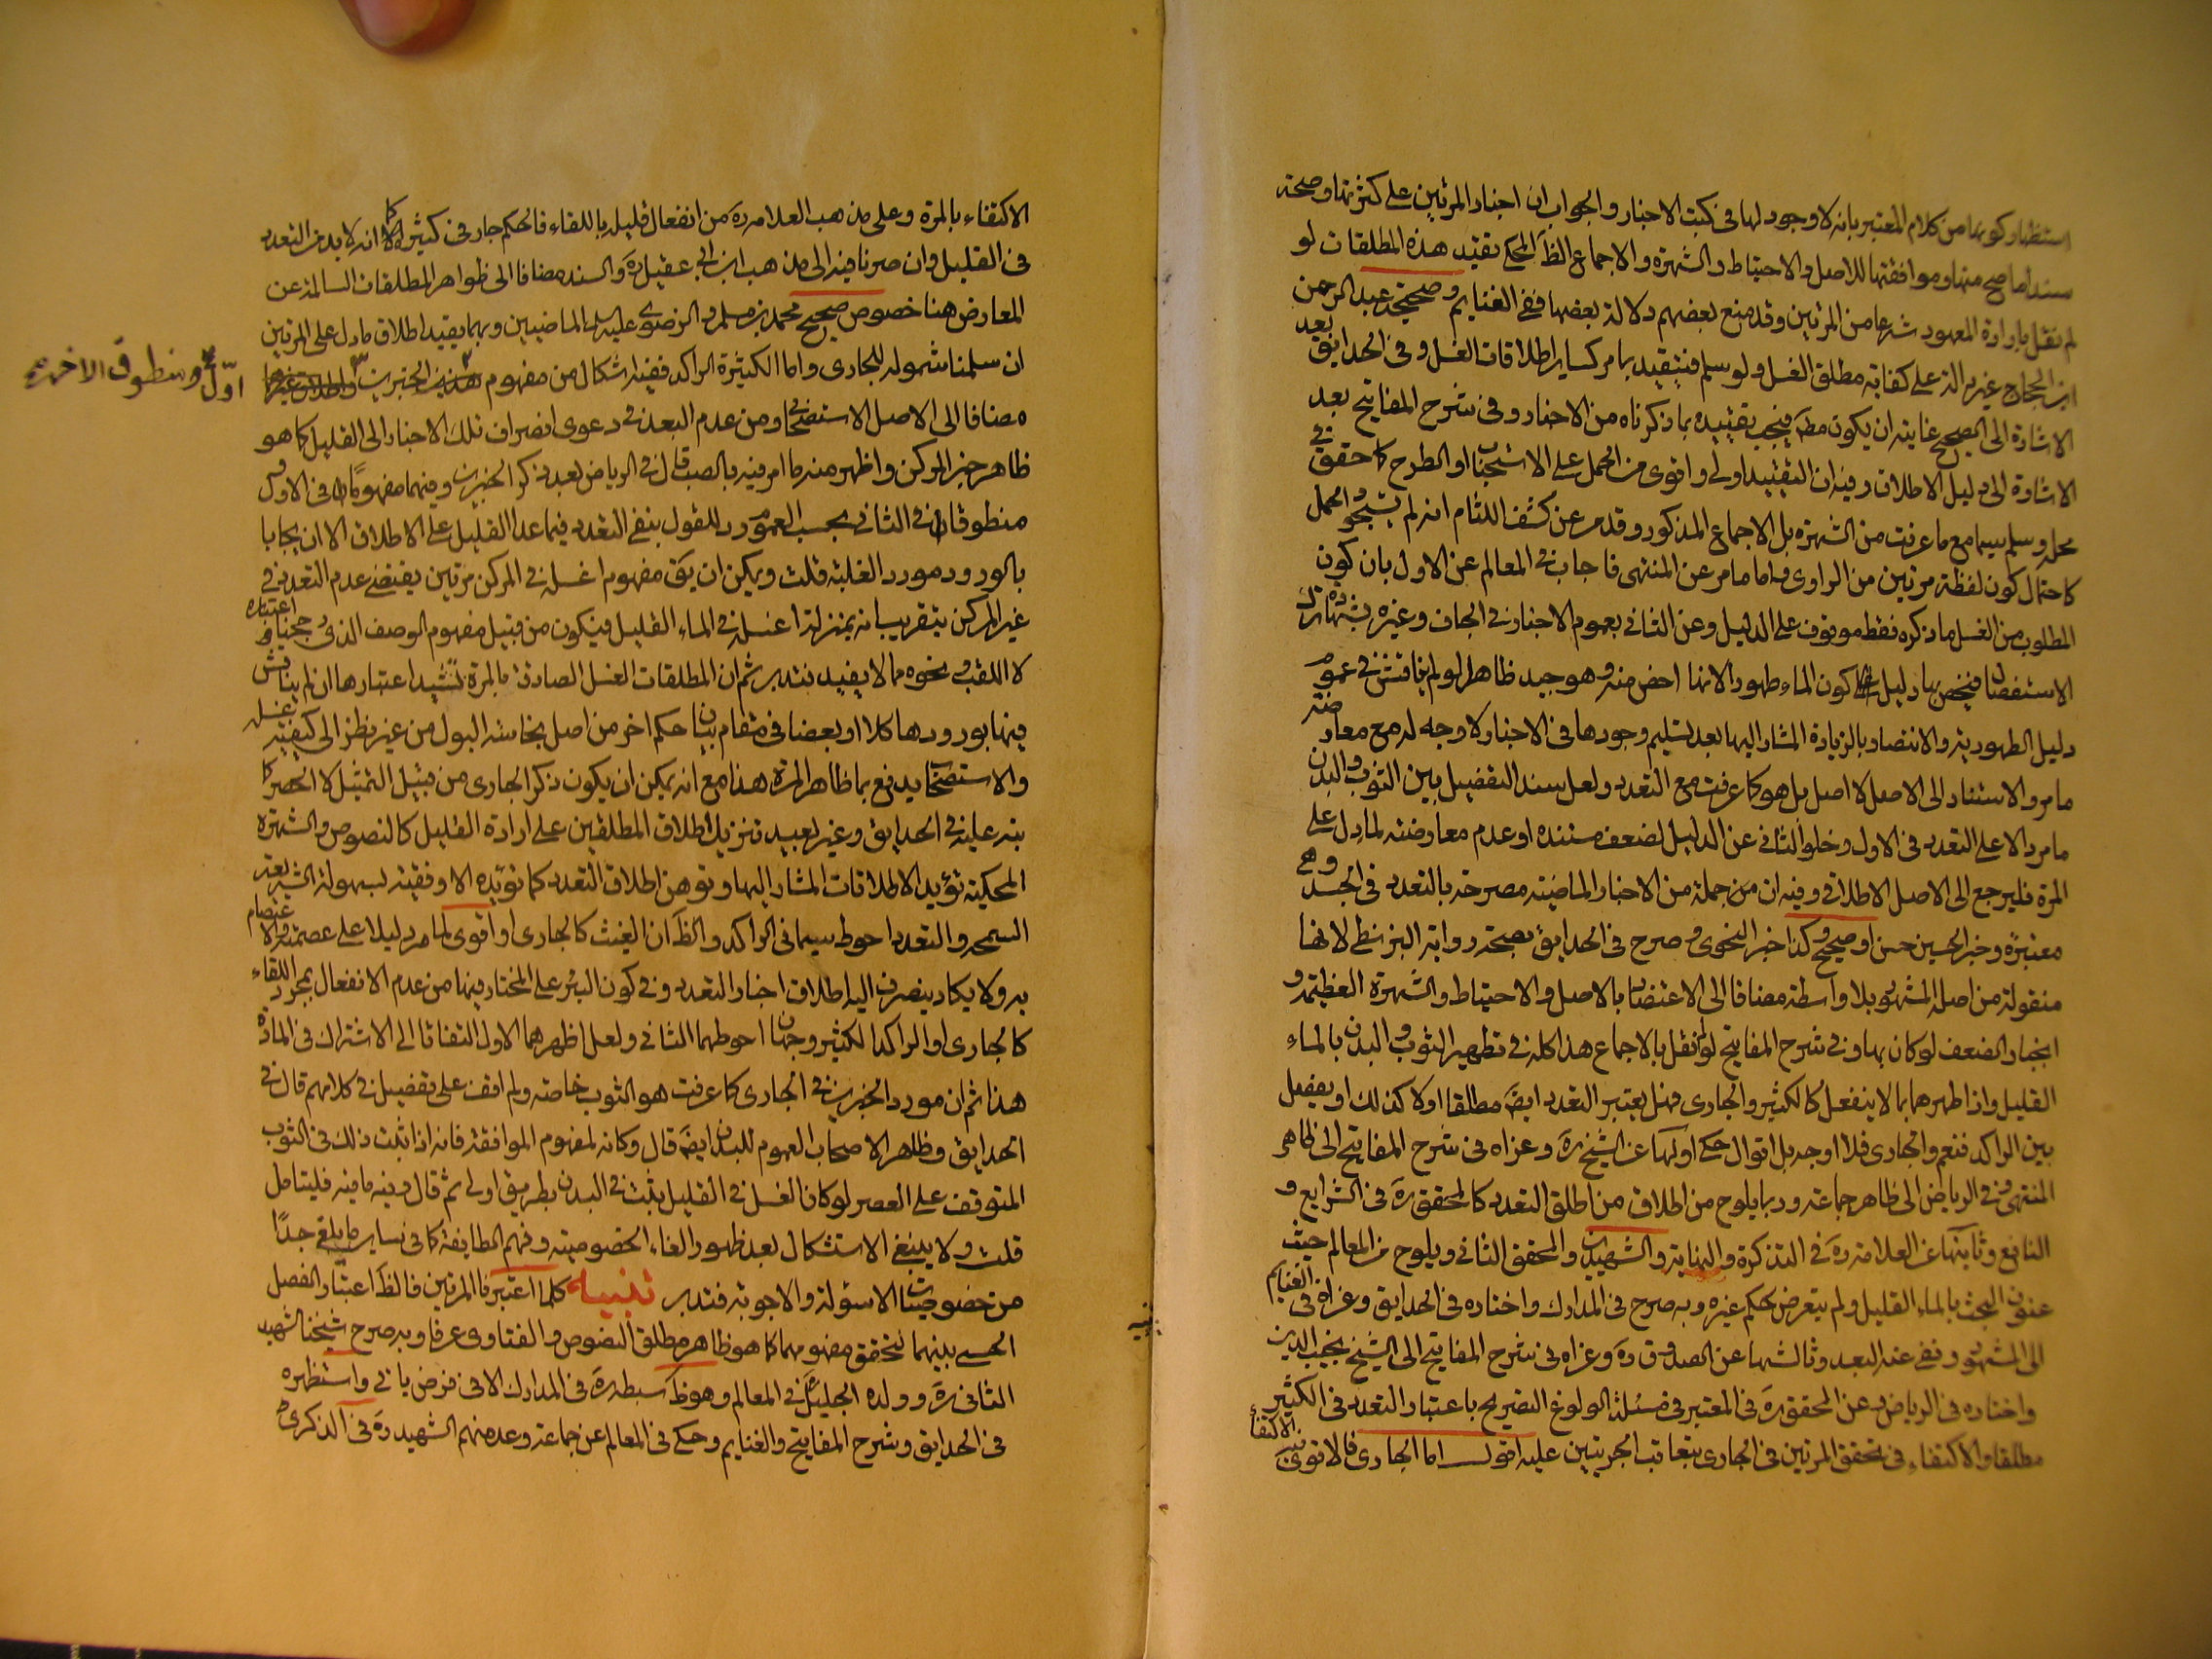 استظهار كونها من كلام المعتبر بانه لا وجود لها فى كتب الاخبار والجواب ان اخبار المرتين على كثرتها وصحة
سند ما صح منها وموافقتها للاصل والاحتياط والشهرة والاجماع الظ المحكى تقيد هذه المطلقات لو
لم نقل بارادة المعهود شرعا من المرتين وقد منع بعضهم دلالة بعضها ففى الغنايم وصحيحة عبد الرحمن
ابن الحجاج غير دالة على كفاية مطلق الغسل ولو سلم فنقيد بما مر كساير اطلاقات الغسل وفى الحدايق بعد
الاشارة الى الصحيح غايته ان يكون مط فيجب تقييده بما ذكرناه من الاخبار وفى شرح المفاتيح بعد
الاشارة الى دليل الاطلاق وفيه ان التقييد اولى واقوى من الحمل على الاستحباب او الطرح كما حقق فى
محله وسلم سيما مع ما عرفت من الشهرة بل الاجماع المذكور وقد مر عن كشف اللثام انه لم
كاحتمال كون لفظة مرتين من الراوى واما ما مر عن المنتهى فاجاب فى المعالم عن الاول بان كون
المطلوب من الغسل ما ذكره فقط موقوف على الدليل وعن الثانى بعموم الاخبار فى الجاف وغيره بشهادة ترك
الاستفصال فيخص بها دليل كون الماء طهورا لانها اخص منه وهو جيد ظاهرا لو لم يناقش فى عموم
دليل الطهورية والانتصار بالزيادة المشار اليها بعد تسليم وجودها فى الاخبار لا وجه له مع معارضته
ما مر والاستناد الى الاصل لا اصل بل هو كما عرفت مع التعدد ولعل سند التفصيل بين الثوب والبدن
ما مر دالا على التعدد فى الاول وخلو الثانى عن الدليل لضعف مستنده او عدم معارضته لما دل على
المرة فليرجع الى الاصل الاطلاقى وفيه ان من جملة من الاخبار الماضية مصرحة بالتعدد فى الجسد وهى
معتبرة وخبر الحسين حسن او صحيح وكذا خبر النحوى وصرح فى الحدايق بصحة رواية البزنطى لانها
منقولة من اصله المشهور بلا واسطة مضافا الى الاعتضاد بالاصل والاحتياط والشهرة العظيمة و
انجبار الضعف لو كان بها وفى شرح المفاتيح لو لم نقل بالاجماع هذا كله فى تطهير الثوب والبدن بالماء
القليل واذا طهرهما بما لا ينفعل كالكثير والجارى فهل يعتبر التعدد ايضا مطلقا اولا كذلك او يفصل
بين الراكد فنعم والجارى فلا اوجه بل اقوال حكى اولها عن الشيخ ره وعزاه فى شرح المفاتيح الى ظاهر
المنتهى وفى الرياض الى ظاهر جماعة وربما يلوح من اطلاق من اطلق التعدد كالمحقق ره فى الشرايع و
النافع وثانيها عن العلامة ره فى التذكرة والنهاية والشهيدين والمحقق الثانى ويلوح من المعالم حيث
عنون البحث بالماء القليل ولم يتعرض لحكم غيره وبه صرح فى المدارك واختاره فى الحدايق وعزاه فى الغنايم
الى المشهور ونفى عنه البعد وثالثها عن الصدوق ره وعزاه فى شرح المفاتيح الى الشيخ نجيب الدين
واختاره فى الرياض وعن المحقق ره فى المعتبر فى مسئلة الولوغ التصريح باعتبار التعدد فى الكثير
مطلقا والاكتفاء فى تحقق المرتين فى الجارى بتعاقب الجريتين عليه اقول اما الجارى فالاقوى فيه الاكتفاء
الاكتفاء بالمرة وعلى مذهب العلامة ره من انفعال قليله باللقاء فالحكم جار فى كثيره كما لا انه لا بد من التعدد
فى القليل وان صرنا فيه الى مذهب ابن ابى عقيل ره والسند مضافا الى ظواهر المطلقات السالمة عن
المعارض هنا خصوص صحيح محمد بن مسلم والرضوى عليه السلام الماضيين وبهما يقيد اطلاق ما دل على المرتين
ان سلمنا شموله للجارى واما الكثيرة الراكد ففيه اشكال من مفهوم هذين الخبرين واطلاق غيرهما
اول ومنطوق الاخر
مضافا الى الاصل الاستصحابى ومن عدم البعد فى دعوى انصراف تلك الاخبار الى القليل كما هو
ظاهر خبر المركن واظهر منه ما امر فيه بالصب قال فى الرياض بعد ذكر الخبرين وفيهما مفهوما فى الاول
منطوقا فى الثانى بحسب العموم رد للقول بنفى التعدد فيما عدا القليل على الاطلاق الا ان يجابا
بالورود مورد الغلبة قلت ويمكن ان يق مفهوم اغسله فى المركن مرتين يقتضى عدم التعدد فى
غير المركن بتقريب انه بمنزلة اغسله فى الماء القليل فيكون من قبيل مفهوم الوصف الذى وحجيتنا اعتباره
لا اللقب ونحوه مما لا يفيد فتدبر ثم ان المطلقات الغسل الصادقة بالمرة نشيد اعتبارها ان لم يناقش
فيها بورودها كلا او بعضا فى مقام بيان حكم اخر من اصل نجاسة البول من غير نظر الى كيفية غسله
والاستصحاب يدفع بما ظاهر المرة هذا مع انه يمكن ان يكون ذكر الجارى من قبيل التمثيل لا الحصر كما
نبه عليه فى الحدايق وغير بعيد تنزيل اطلاق المطلقين على ارادة القليل كالنصوص والشهرة
المحكية تؤيد الاطلاقات المشار اليها وتوهن اطلاق التعدد كما تؤيده الاوفقية لسهولة الشريعة
السمحة والتعدد احوط سيما فى الراكد والظ ان الغيث كالجارى او اقوى لما مر دليلا على عصمته والاعتصام
به ولا يكاد ينصرف اليه اطلاق اخبار التعدد وفى كون البئر على المختار فيها من عدم الانفعال بمجرد اللقاء
كالجارى او الراكد الكثير وجهان احوطهما الثانى ولعل اظهرهما الاول التفاتا الى الاشتراك فى المادة
هذا ثم ان مورد الخبرين فى الجارى كما عرفت هو الثوب خاصة ولم اقف على تفصيل فى كلامهم قال فى
الحدايق وظاهر الاصحاب العموم للبدن ايضا قال وكانه لمفهوم الموافقة فانه اذا ثبت ذلك فى الثوب
المتوقف على العصر لو كان الغسل فى القليل يثبت فى البدن بطريق اولى ثم قال وفيه ما فيه فليتامل
قلت ولا ينبغى الاستشكال بعد ظهور الغاء الخصوصية وفهم الطايفة كما فى ساير ما يلغى جدا
من خصوصيات الاسئولة والاجوبة فتدبر تنبيه كلما اعتبر فالمرتين فالظ اعتبار الفصل
الحسى بينهما لتحقق مفهومهما كما هو ظاهر مطلق النصوص والفتاوى عرفا وبه صرح شيخنا الشهيد
الثانى ره وولده الجليل فى المعالم وهو ظ سبطه ره فى المدارك الا فى فرض ياتى واستظهره
فى الحدايق وشرح المفاتيح والغنايم وحكى فى المعالم عن جماعة وعد منهم الشهيد ره فى الذكرى